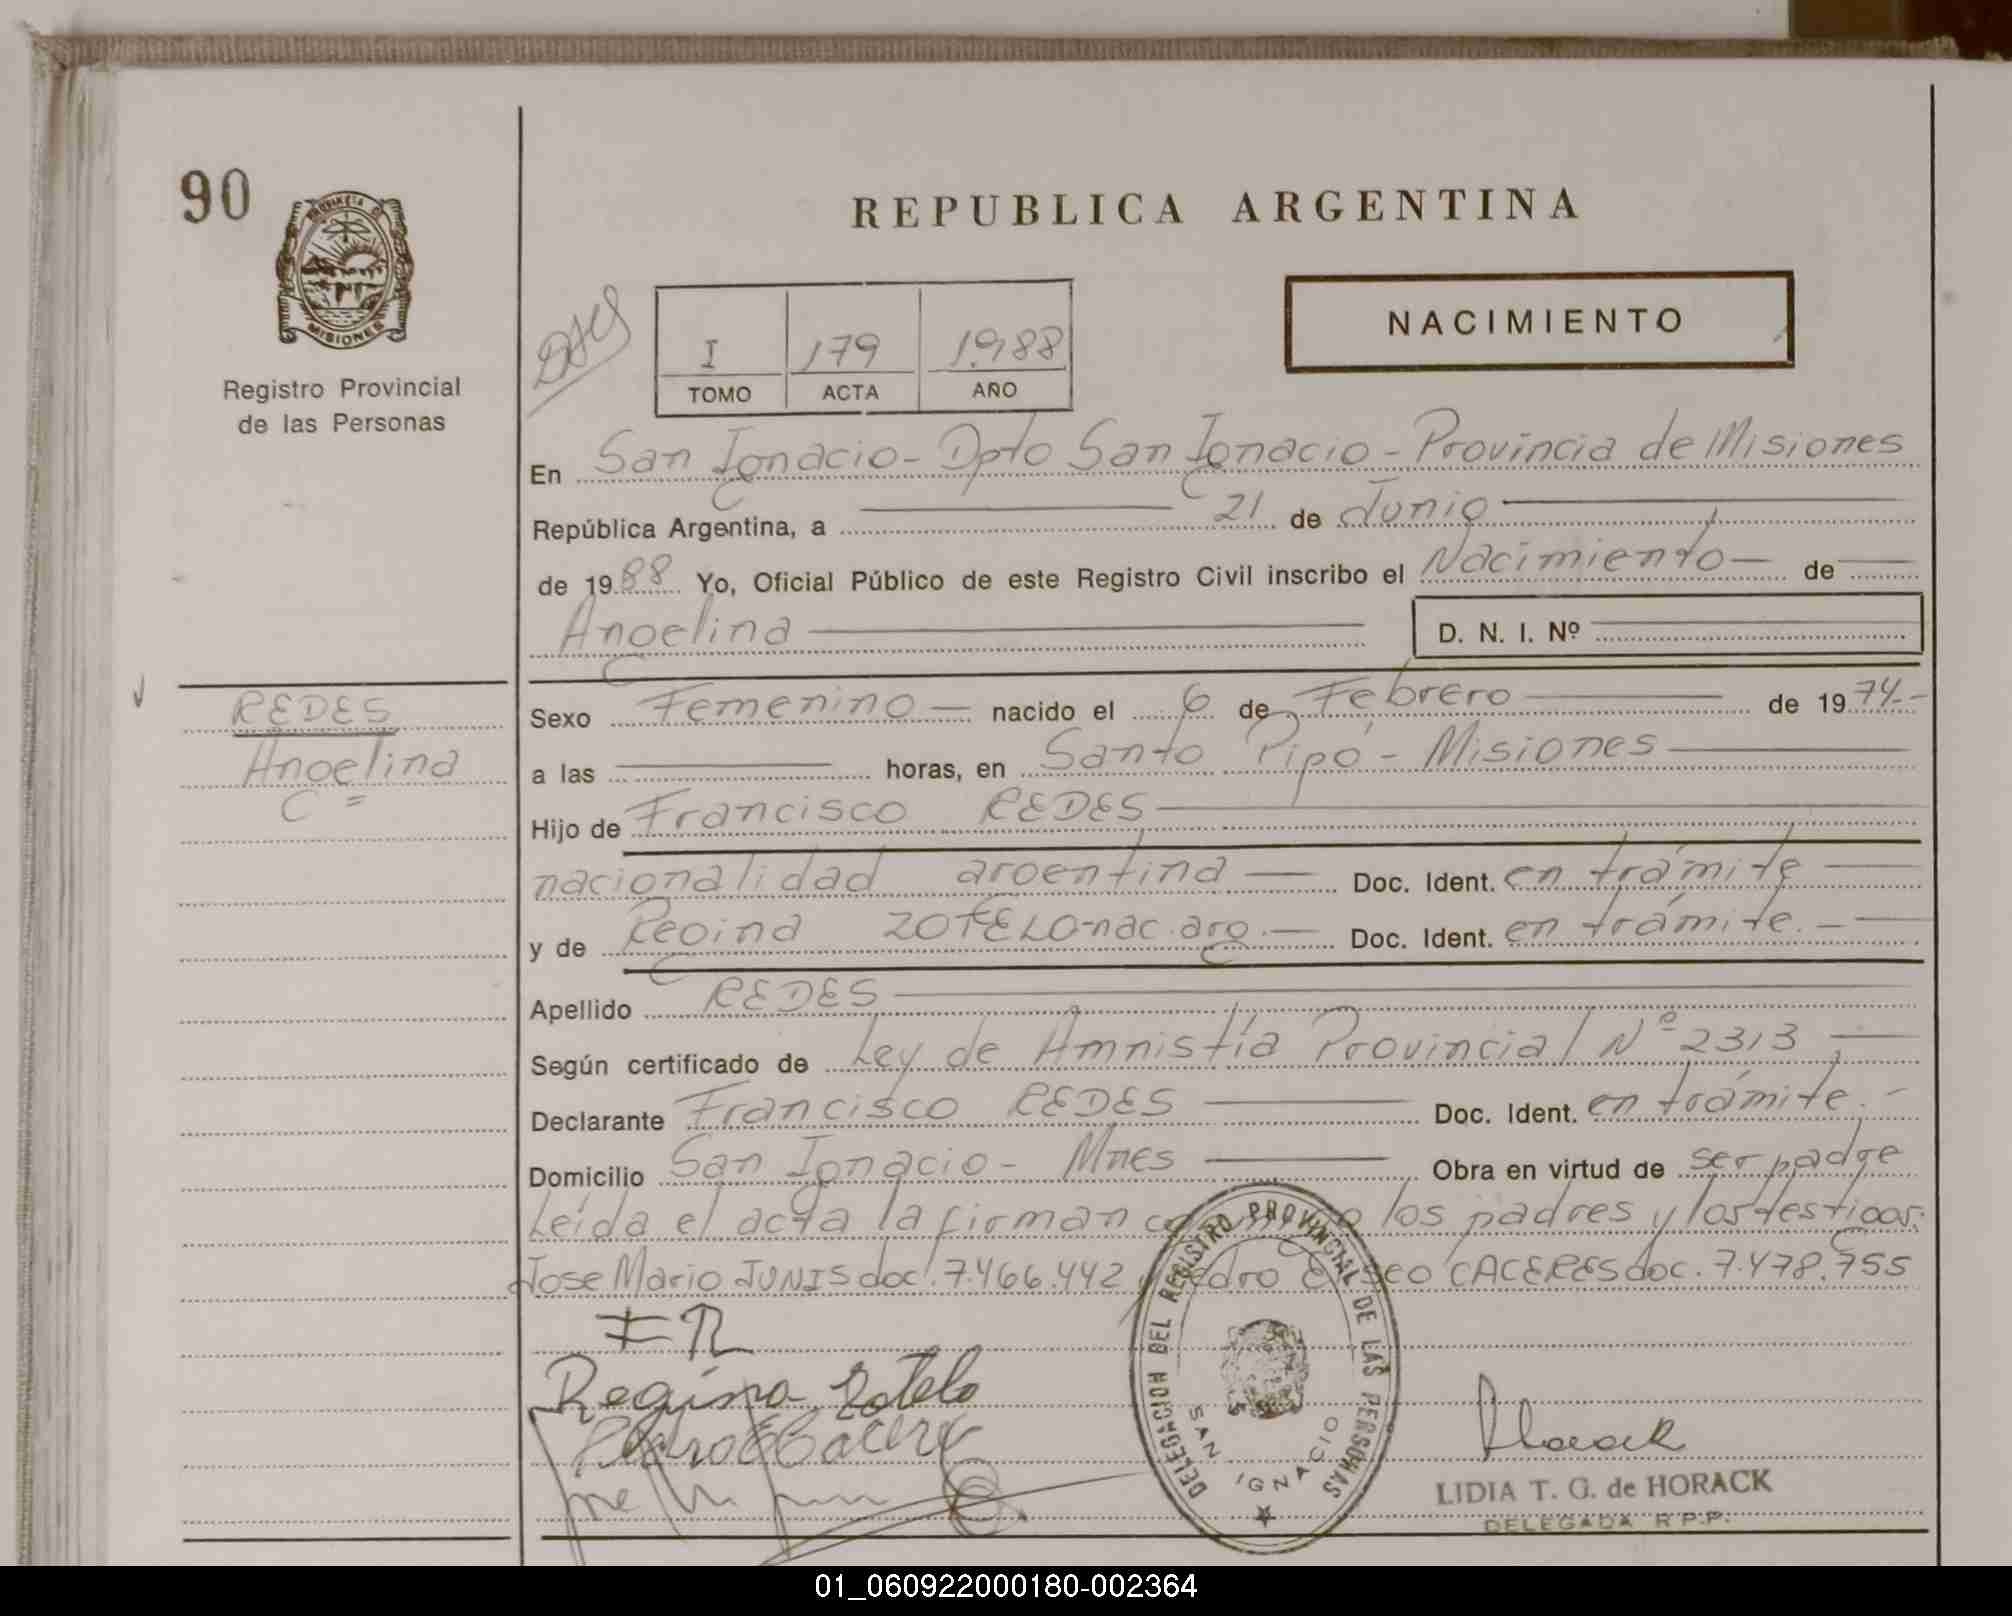 90
PROVINCIA D
MISIONES
Registro Provincial
de las Personas
REPUBLICA ARGENTINA
NACIMIENTO
I 179 1988
TOMO ACTA AÑO
En San Ignacio - Dpto San Ignacio - Provincia de Misiones
República Argentina, a 21 de Junio
de 1988 Yo, Oficial Público de este Registro Civil inscribo el Nacimiento - de
Angelina
D. N. I. Nº
REDES
Angelina
Sexo Femenino - nacido el 6 de Febrero de 1974.-
a las horas, en Santo Pipó - Misiones
Hijo de Francisco REDES
nacionalidad argentina - Doc. Ident. en trámite
y de Regina ZOTELO-nac. arg. - Doc. Ident. en trámite. -
Apellido REDES
Según certificado de Ley de Amnistía Provincial Nº 2313,
Declarante Francisco REDES Doc. Ident. en trámite. -
Domicilio San Ignacio - Mnes Obra en virtud de ser padre
Leída el acta la firman los padres y los testigos:
Jose Mario JUNIS doc. 7.466.442 y Pedro Eliseo CACERES doc. 7.478.755
FR
Regina Zotelo
Pedro E Caceres
DELEGACION DEL REGISTRO PROVINCIAL DE LAS PERSONAS
SAN IGNACIO
Horack
LIDIA T. G. de HORACK
DELEGADA R.P.P.
01_060922000180-002364